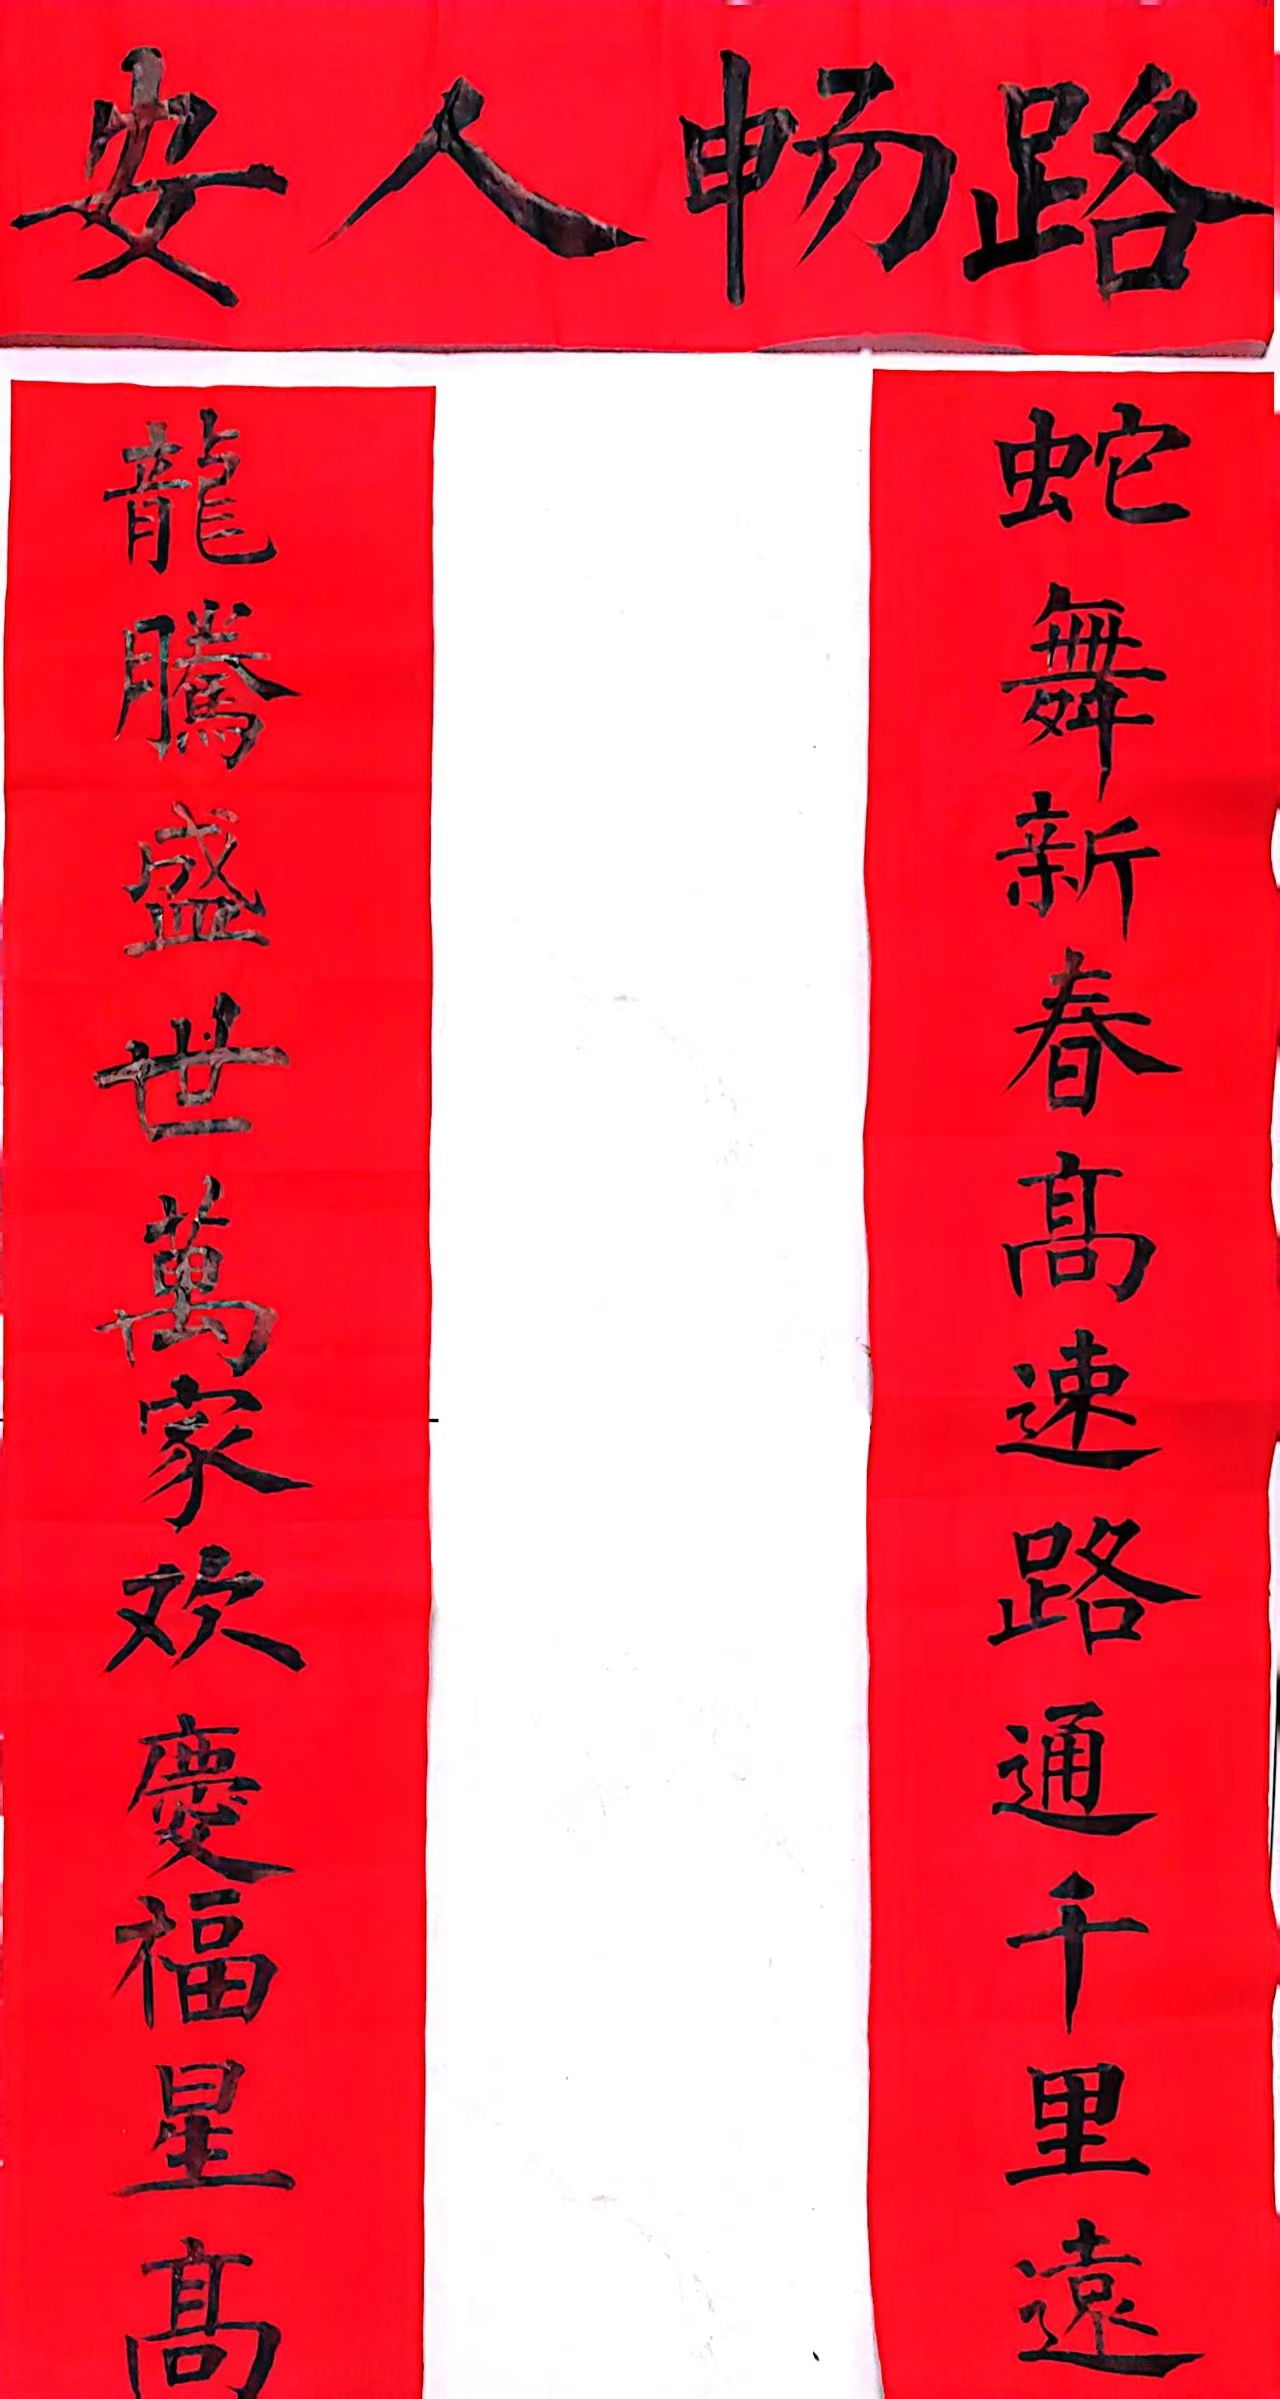 路畅人安
蛇舞新春髙速路通千里遠
龍騰盛世萬家欢慶福星髙